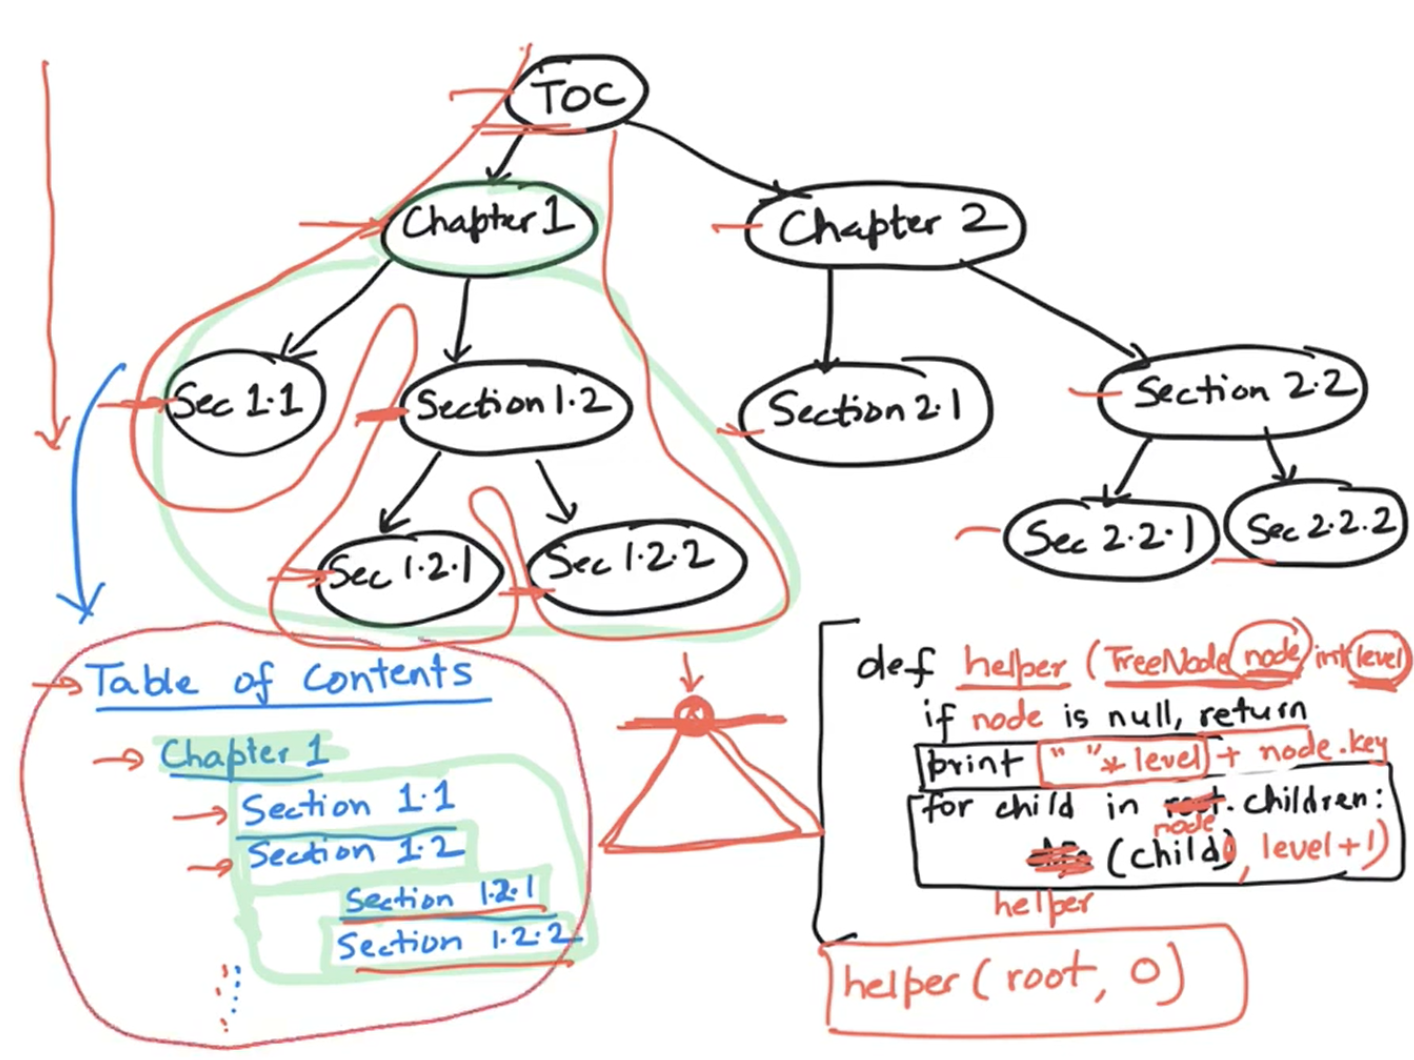 TOC
Chapter 1
Chapter 2
Sec 1.1
Section 1.2
Section 2.1
Section 2.2
Sec 1.2.1
Sec 1.2.2
Sec 2.2.1
Sec 2.2.2
Table of Contents
Chapter 1
Section 1.1
Section 1.2
Section 1.2.1
Section 1.2.2
def helper (TreeNode node, int level)
if node is null, return
print " " * level + node.key
for child in node.children:
helper (child, level+1)
helper ( root, 0 )